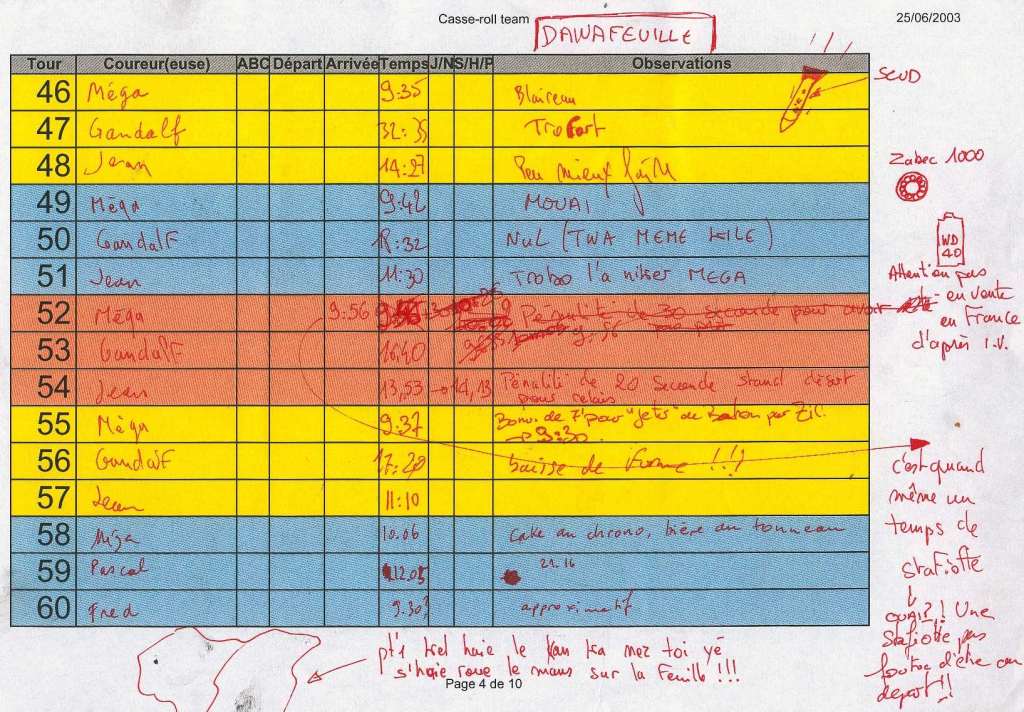 Casse-roll team
25/06/2003
DAWAFEUILLE
Tour Coureur(euse) ABC Départ Arrivée Temps J/N S/H/P Observations
46 Méga 9:35 Blaireau
SCUD
47 Gandalf 32:35 Tro Fort
48 Jean 14:27 Peu mieux faire
Zabec 1000
49 Méga 9:42 MOUAI
50 GandalF 18:32 NUL (TWA MEME KILE)
WD
40
51 Jean 11:30 Trobo l'a niker MEGA
Attention pas
en vente
en France
d'après I.V.
52 Méga 9:56 Pénalité de 30 seconde pour avoir
53 GandalF 16:40 9,56
54 Jean 13,53 → 14,13 Pénalité de 20 seconde stand désert
pour relais
55 Méga 9:37 Bonus de 7" pour "jeter" du Baton par Zil.
→ 9:30.
56 GandalF 17:20 baisse de forme !!!
57 Jean 11:10
58 Méga 10.06 Cake au chrono, bière au tonneau
59 Pascal 12.05 21.16
60 Fred 9.30? approximatif
c'est quand
même un
temps de
stafiotte
OUAI?! Une
Stafiotte pas
foutre d'être au
depart!!
pt1 kel haie le kan ka nez toi yé
s'haie roue le mans sur la feuille !!!
Page 4 de 10